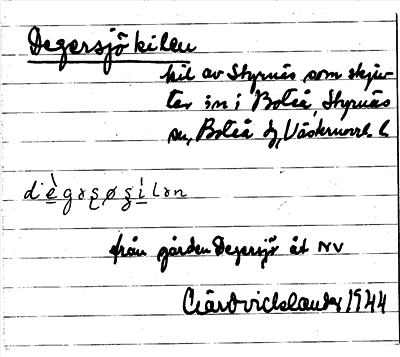 Degersjökilen
kil av Styrnäs som skju-
ter in i Boteå, Styrnäs
sn, Boteå hd, Västernorrl. l.
dègəṣøṣìlən
från gården Degersjö åt NV
1944